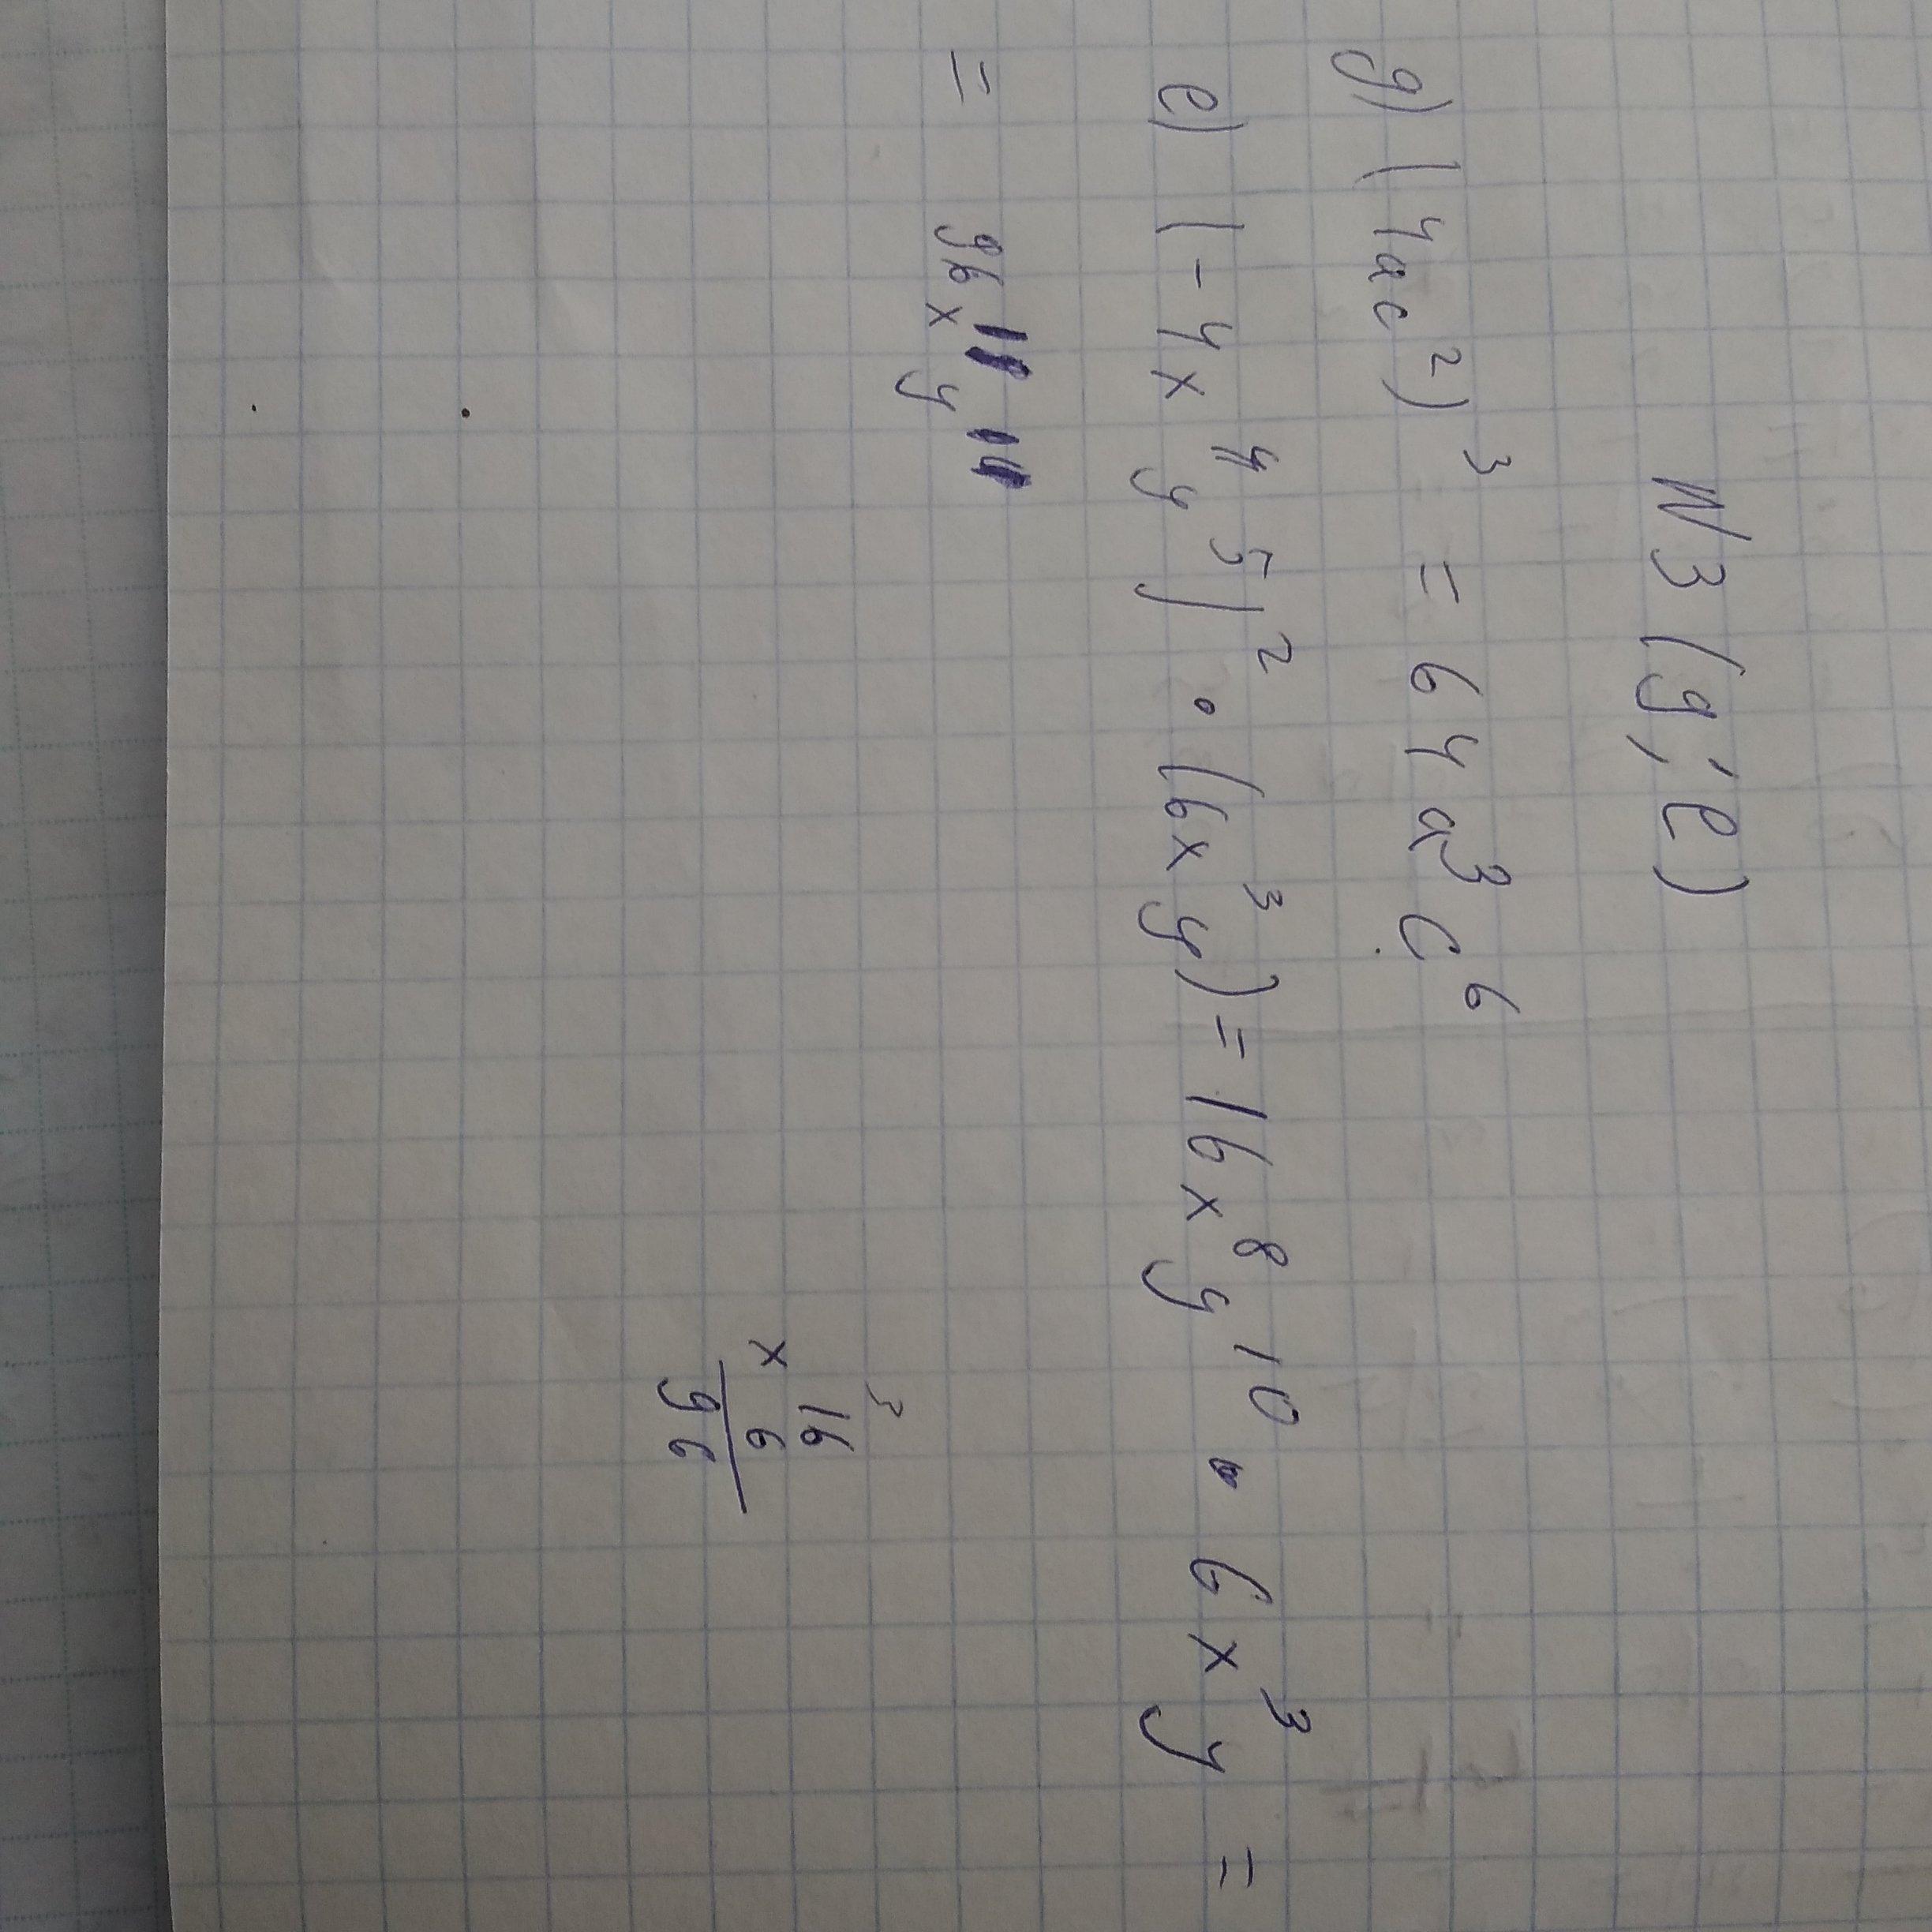 N3 (g; e)
g) (4ac²)³ = 64a³c⁶
e) (-4x⁴y⁵)² · (6x³y) = 16x⁸y¹⁰ · 6x³y =
= 96x¹¹y¹¹
3
16
x 6
96